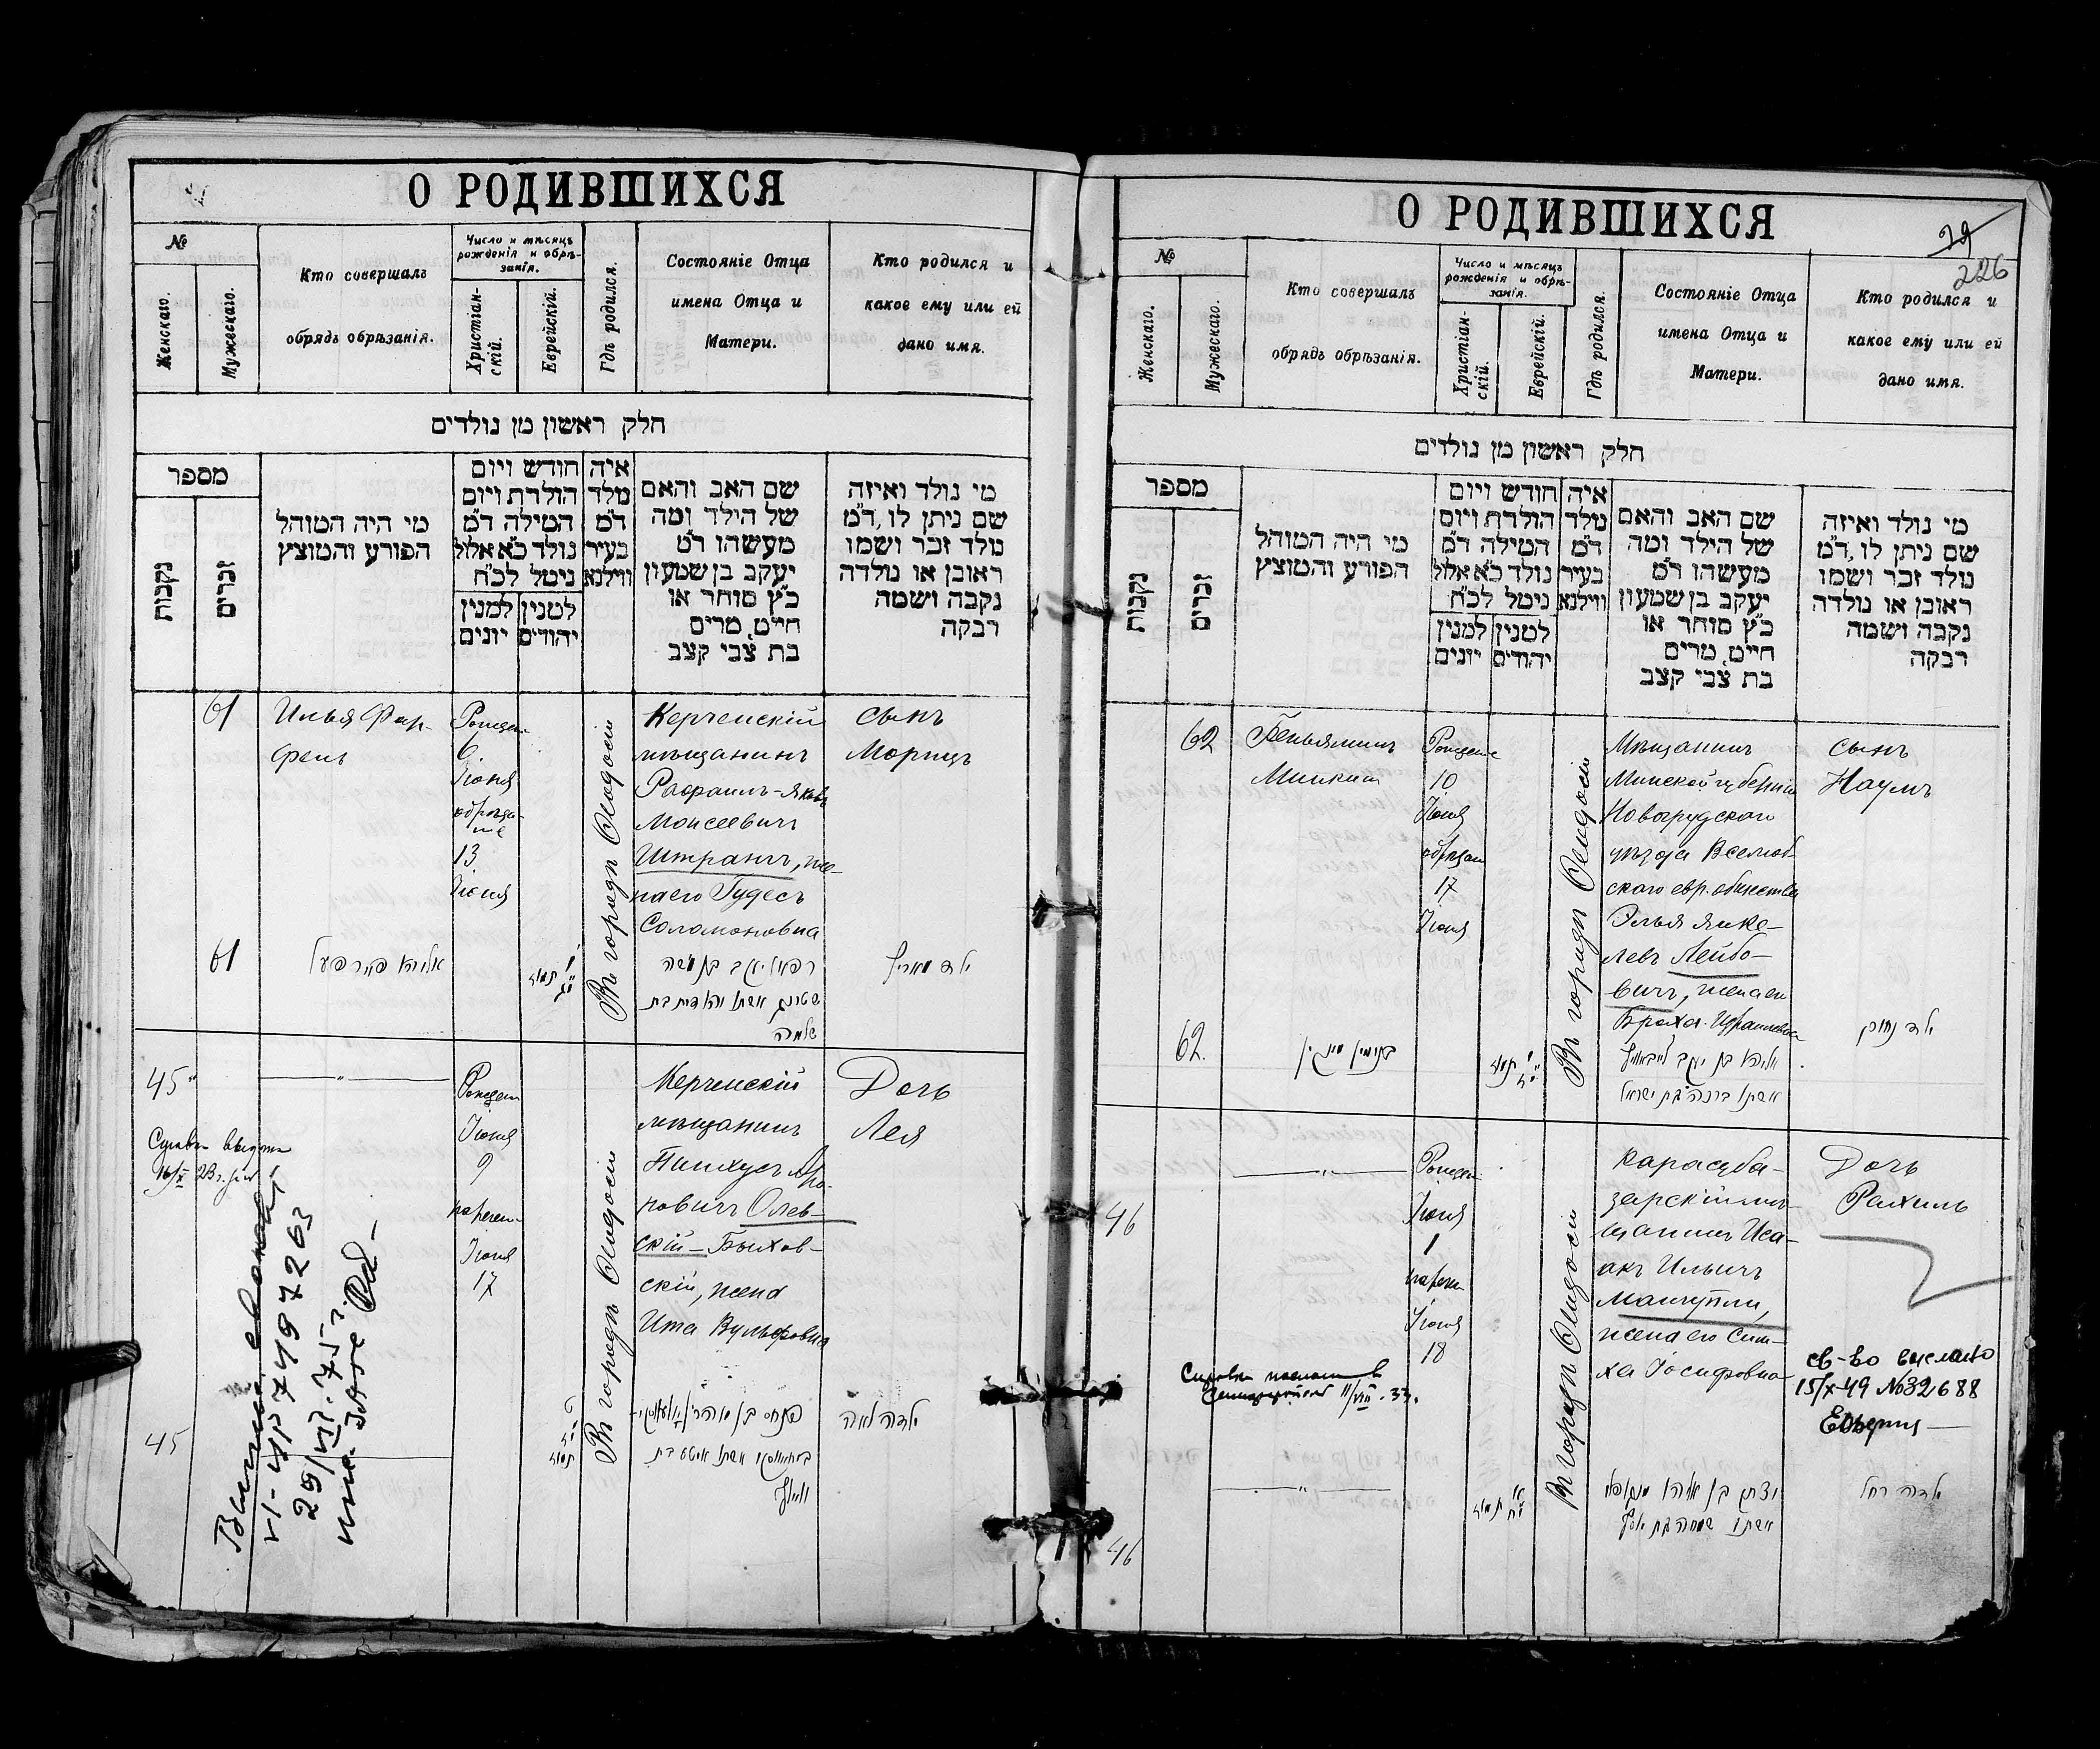 О РОДИВШИХСЯ
№
Женскаго.
Мужескаго.
Кто совершалъ
обрядъ обрѣзанія.
Число и мѣсяцъ
рожденія и обрѣ-
занія.
Христіан-
скій.
Еврейскій.
Гдѣ родился.
Состояніе Отца
имена Отца и
Матери.
Кто родился и
какое ему или ей
дано имя.
חלק ראשון מן נולדים
מספר
נקבות
זכרים
מי היה המוהל
הפורע והמוצץ
חודש ויום
הולדת ויום
המילה ד״מ
נולד כ״א אלול
ניטל לכ״ח
למנין
יונים
למנין
יהודים
איה
נולד
ד״מ
בעיר
ווילנא
שם האב והאם
של הילד ומה
מעשהו ד״מ
יעקב בן שמעון
כ״ץ סוחר או
חייט, מרים
בת צבי קצב
מי נולד ואיזה
שם ניתן לו, ד״מ
נולד זכר ושמו
ראובן או נולדה
נקבה ושמה
רבקה
61
Илья Фар-
фель
6
Іюня
13
Іюня
Въ городѣ Ѳеодосіи
Керченскій
мѣщанинъ
Рафаилъ-Яковъ
Моисеевичъ
Штрамъ, же-
на его Гудесъ
Соломоновна
сынъ
Морицъ
61
רפאל יעקב בן משה
שלמה
45
Рожден
Іюня
9
наречен
Іюня
17
Въ городѣ Ѳеодосіи
Керченскій
мѣщанинъ
Пинхусъ Аро-
новичъ Олев-
скій-Быхов-
скій, жена
Ита Вульфовна
Дочь
Лея
V-ИК 7497263
45
ילדה לאה
О РОДИВШИХСЯ
29
226
№
Женскаго.
Мужескаго.
Кто совершалъ
обрядъ обрѣзанія.
Число и мѣсяцъ
рожденія и обрѣ-
занія.
Христіан-
скій.
Еврейскій.
Гдѣ родился.
Состояніе Отца
имена Отца и
Матери.
Кто родился и
какое ему или ей
дано имя.
חלק ראשון מן נולדים
מספר
נקבות
זכרים
מי היה המוהל
הפורע והמוצץ
חודש ויום
הולדת ויום
המילה ד״מ
נולד כ״א אלול
ניטל לכ״ח
למנין
יונים
למנין
יהודים
איה
נולד
ד״מ
בעיר
ווילנא
שם האב והאם
של הילד ומה
מעשהו ד״מ
יעקב בן שמעון
כ״ץ סוחר או
חייט, מרים
בת צבי קצב
מי נולד ואיזה
שם ניתן לו, ד״מ
נולד זכר ושמו
ראובן או נולדה
נקבה ושמה
רבקה
62
Беньяминъ
Минкин
10
Іюня
17
Іюня
Въ городѣ Ѳеодосіи
Мѣщанинъ
Минской губерніи
Новогрудскаго
уѣзда Вселюб-
скаго евр. общества
Элья Янке-
левъ Лейбо-
вичъ, жена его
Браха Израилевна
сынъ
Наумъ
62.
בנימין מינקין
אליהו בן יעקב לייבאוויץ
אשתו ברכה בת ישראל
ילד נחום
46
Іюня
1
Іюня
18
Въ городѣ Ѳеодосіи
Карасуба-
зарскій мѣ-
щанинъ Иса-
акъ Ильичъ
Мангупли,
жена его Сим-
ха Іосифовна
Дочь
Рахиль
св-во выслано
15/X-49 №32688
11/VIII.33.
46
יצחק בן אליהו מנגופלי
אשתו שמחה בת יוסף
ילדה רחל